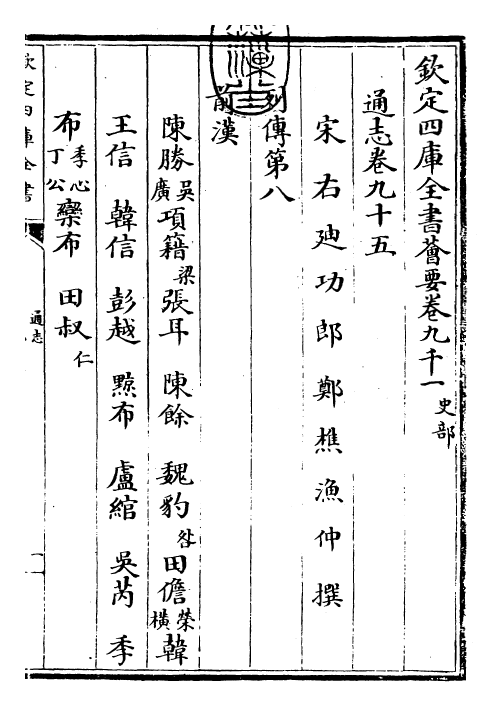 欽定四庫全書薈要卷九千一 史部
通志卷九十五
宋右迪功郎鄭樵漁仲撰
列傳第八
前漢
陳勝 吳廣 項籍 梁 張耳 陳餘 魏豹 咎 田儋 榮橫 韓
王信 韓信 彭越 黥布 盧綰 吳芮 季
布 季心丁公 欒布 田叔 仁
欽定四庫全書
通志
一